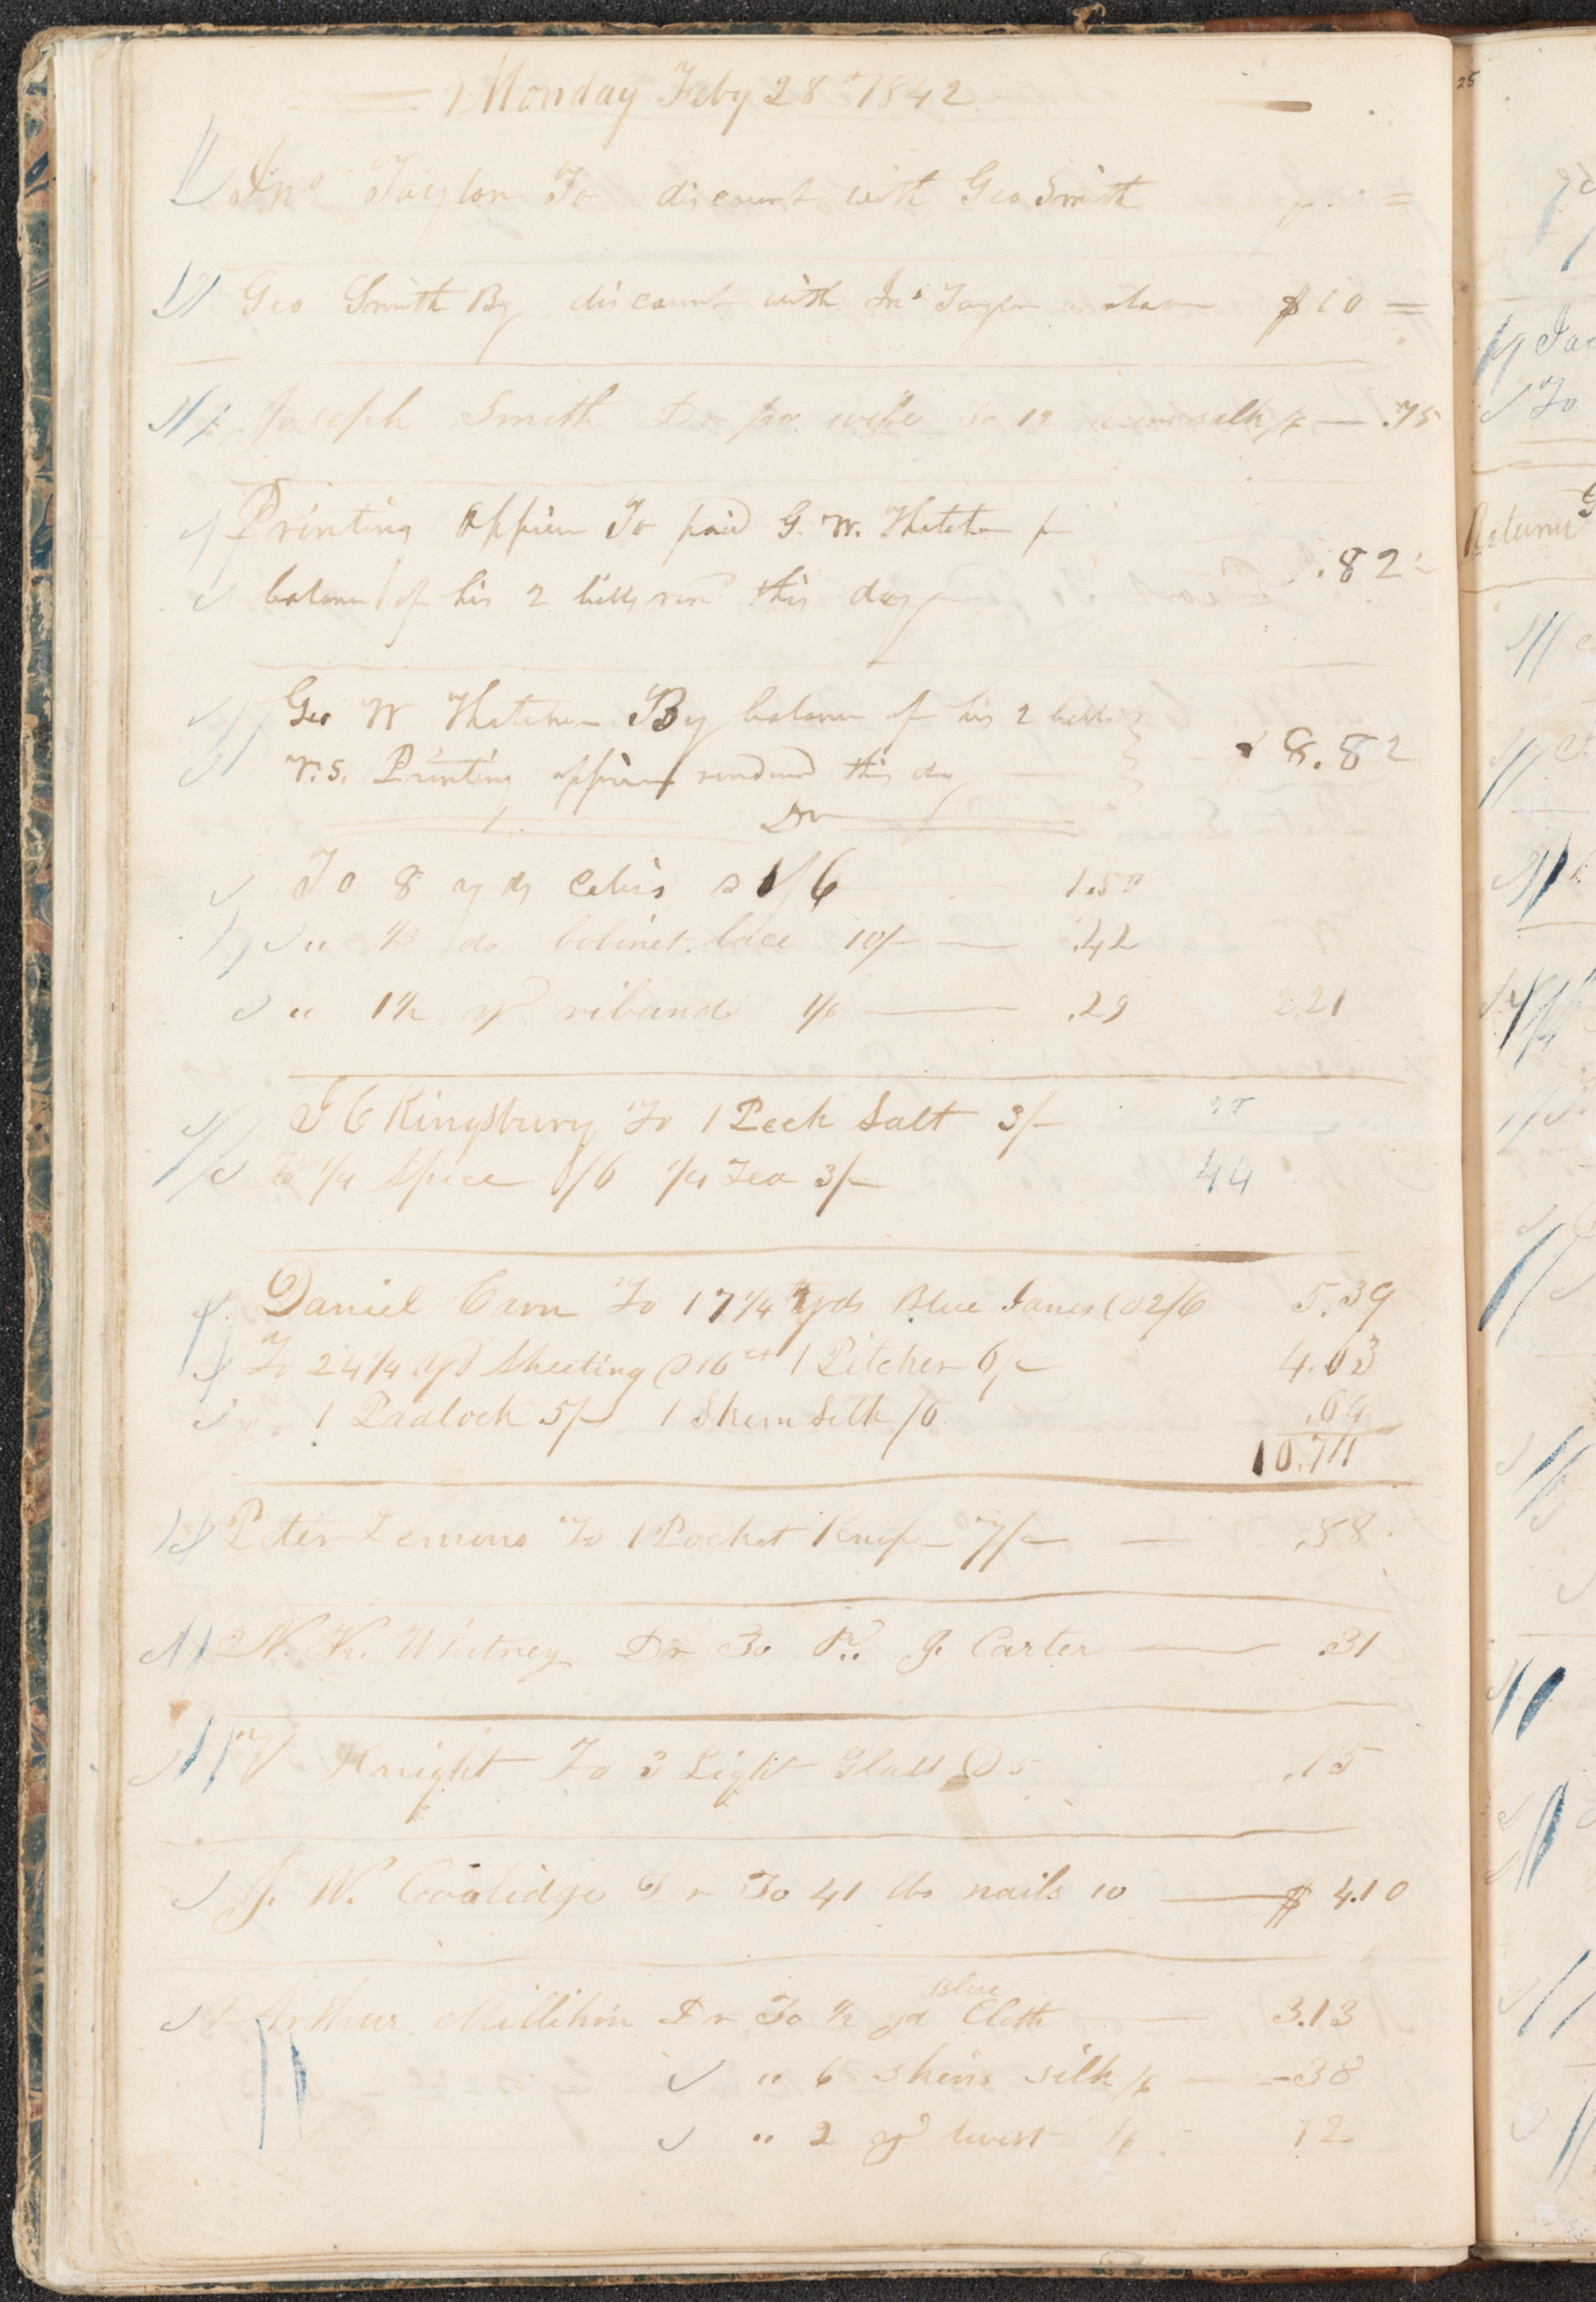 Monday Feby 28th 1842
Jno Taylor To discount with Geo Smith
Geo Smith By discount with Jno Taylor $10 =
Joseph Smith Dr pr wife To 12 skeins silk /6 — .75
Printing Office To paid G. W. Thatcher fr
balance of his 2 bills this day .82
Geo W Thatcher By balance of his 2 bills
v.s. Printing office rendered this day 8.82
Dr
To 8 yds @ 1/6 1.50
" 1/3 do bobinet lace 10/– — .42
" 1 1/2 yd riband 1/6 — .29 2.21
J C Kingsbury To 1 Peck Salt 3/–
To 1/4 Spice 1/6 1/4 Tea 3/– 44
Daniel Carn To 17 1/4 yds Blue Janes @ 2/6 5.39
To 24 1/4 yd Sheeting @ 16 cts 1 Pitcher 6/–
1 Padlock 5/– 1 Skein Silk /6 .69
10.711
Peter Lemons To 1 Pocket Knife 7/– — .58
N. K. Whitney Dr To Pr. J. Carter — .31
V Knight To 3 Light Glass @ 5 .15
J. W. Coolidge Dr To 41 lbs nails 10 — $ 4.10
Blue
Arthur Millikin Dr To 1/2 yd Cloth — 3.13
" 6 skeins silk /6 — 38
" 2 yd twist /6 12
25